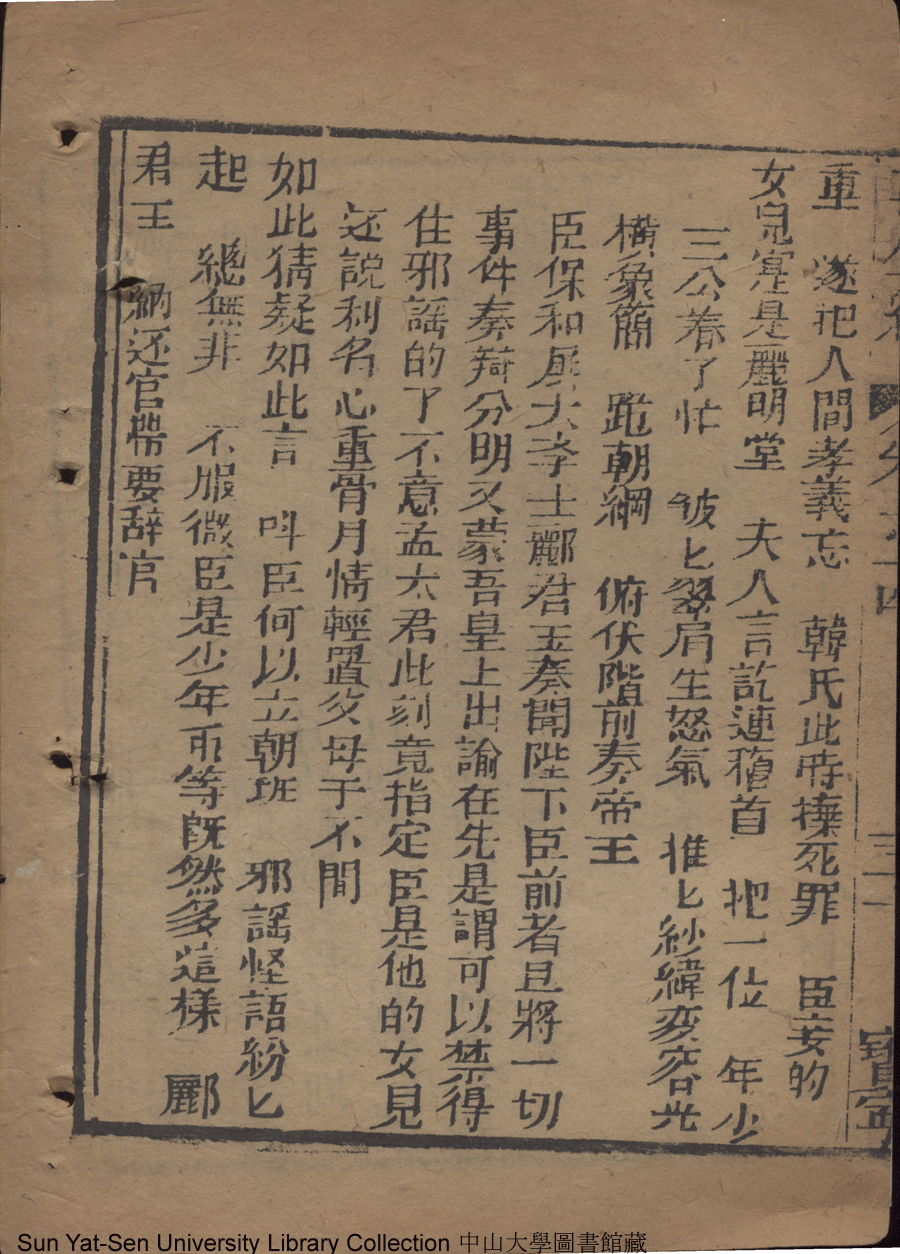 重　遂把人間孝義忘　韓氏此時㨗死罪　臣妾的
女兒寔是酈明堂　夫人言訖連稽首　把一位　年少
三公着了忙　皱匕翠眉生怒氣　推匕紗緯变容光
橫象簡　跪朝綱　俯伏階前奏帝王
臣保和殿大孝士酈君玉奏聞陛下臣前者旦將一切
事件奏辯分明又蒙吾皇上出諭在先是謂可以禁得
住邪謡的了不意孟太君此刻竟指定臣是他的女見
还說利名心重骨月情輕置父母于不問
如此猜疑如此言　呌臣何以立朝班　邪謡怪語紛匕
起　總無非　不服微臣是少年爾等既然多這樣　酈
君王　納还官帶要辞官
寶寧
Sun Yat-Sen University Library Collection 中山大學圖書館藏